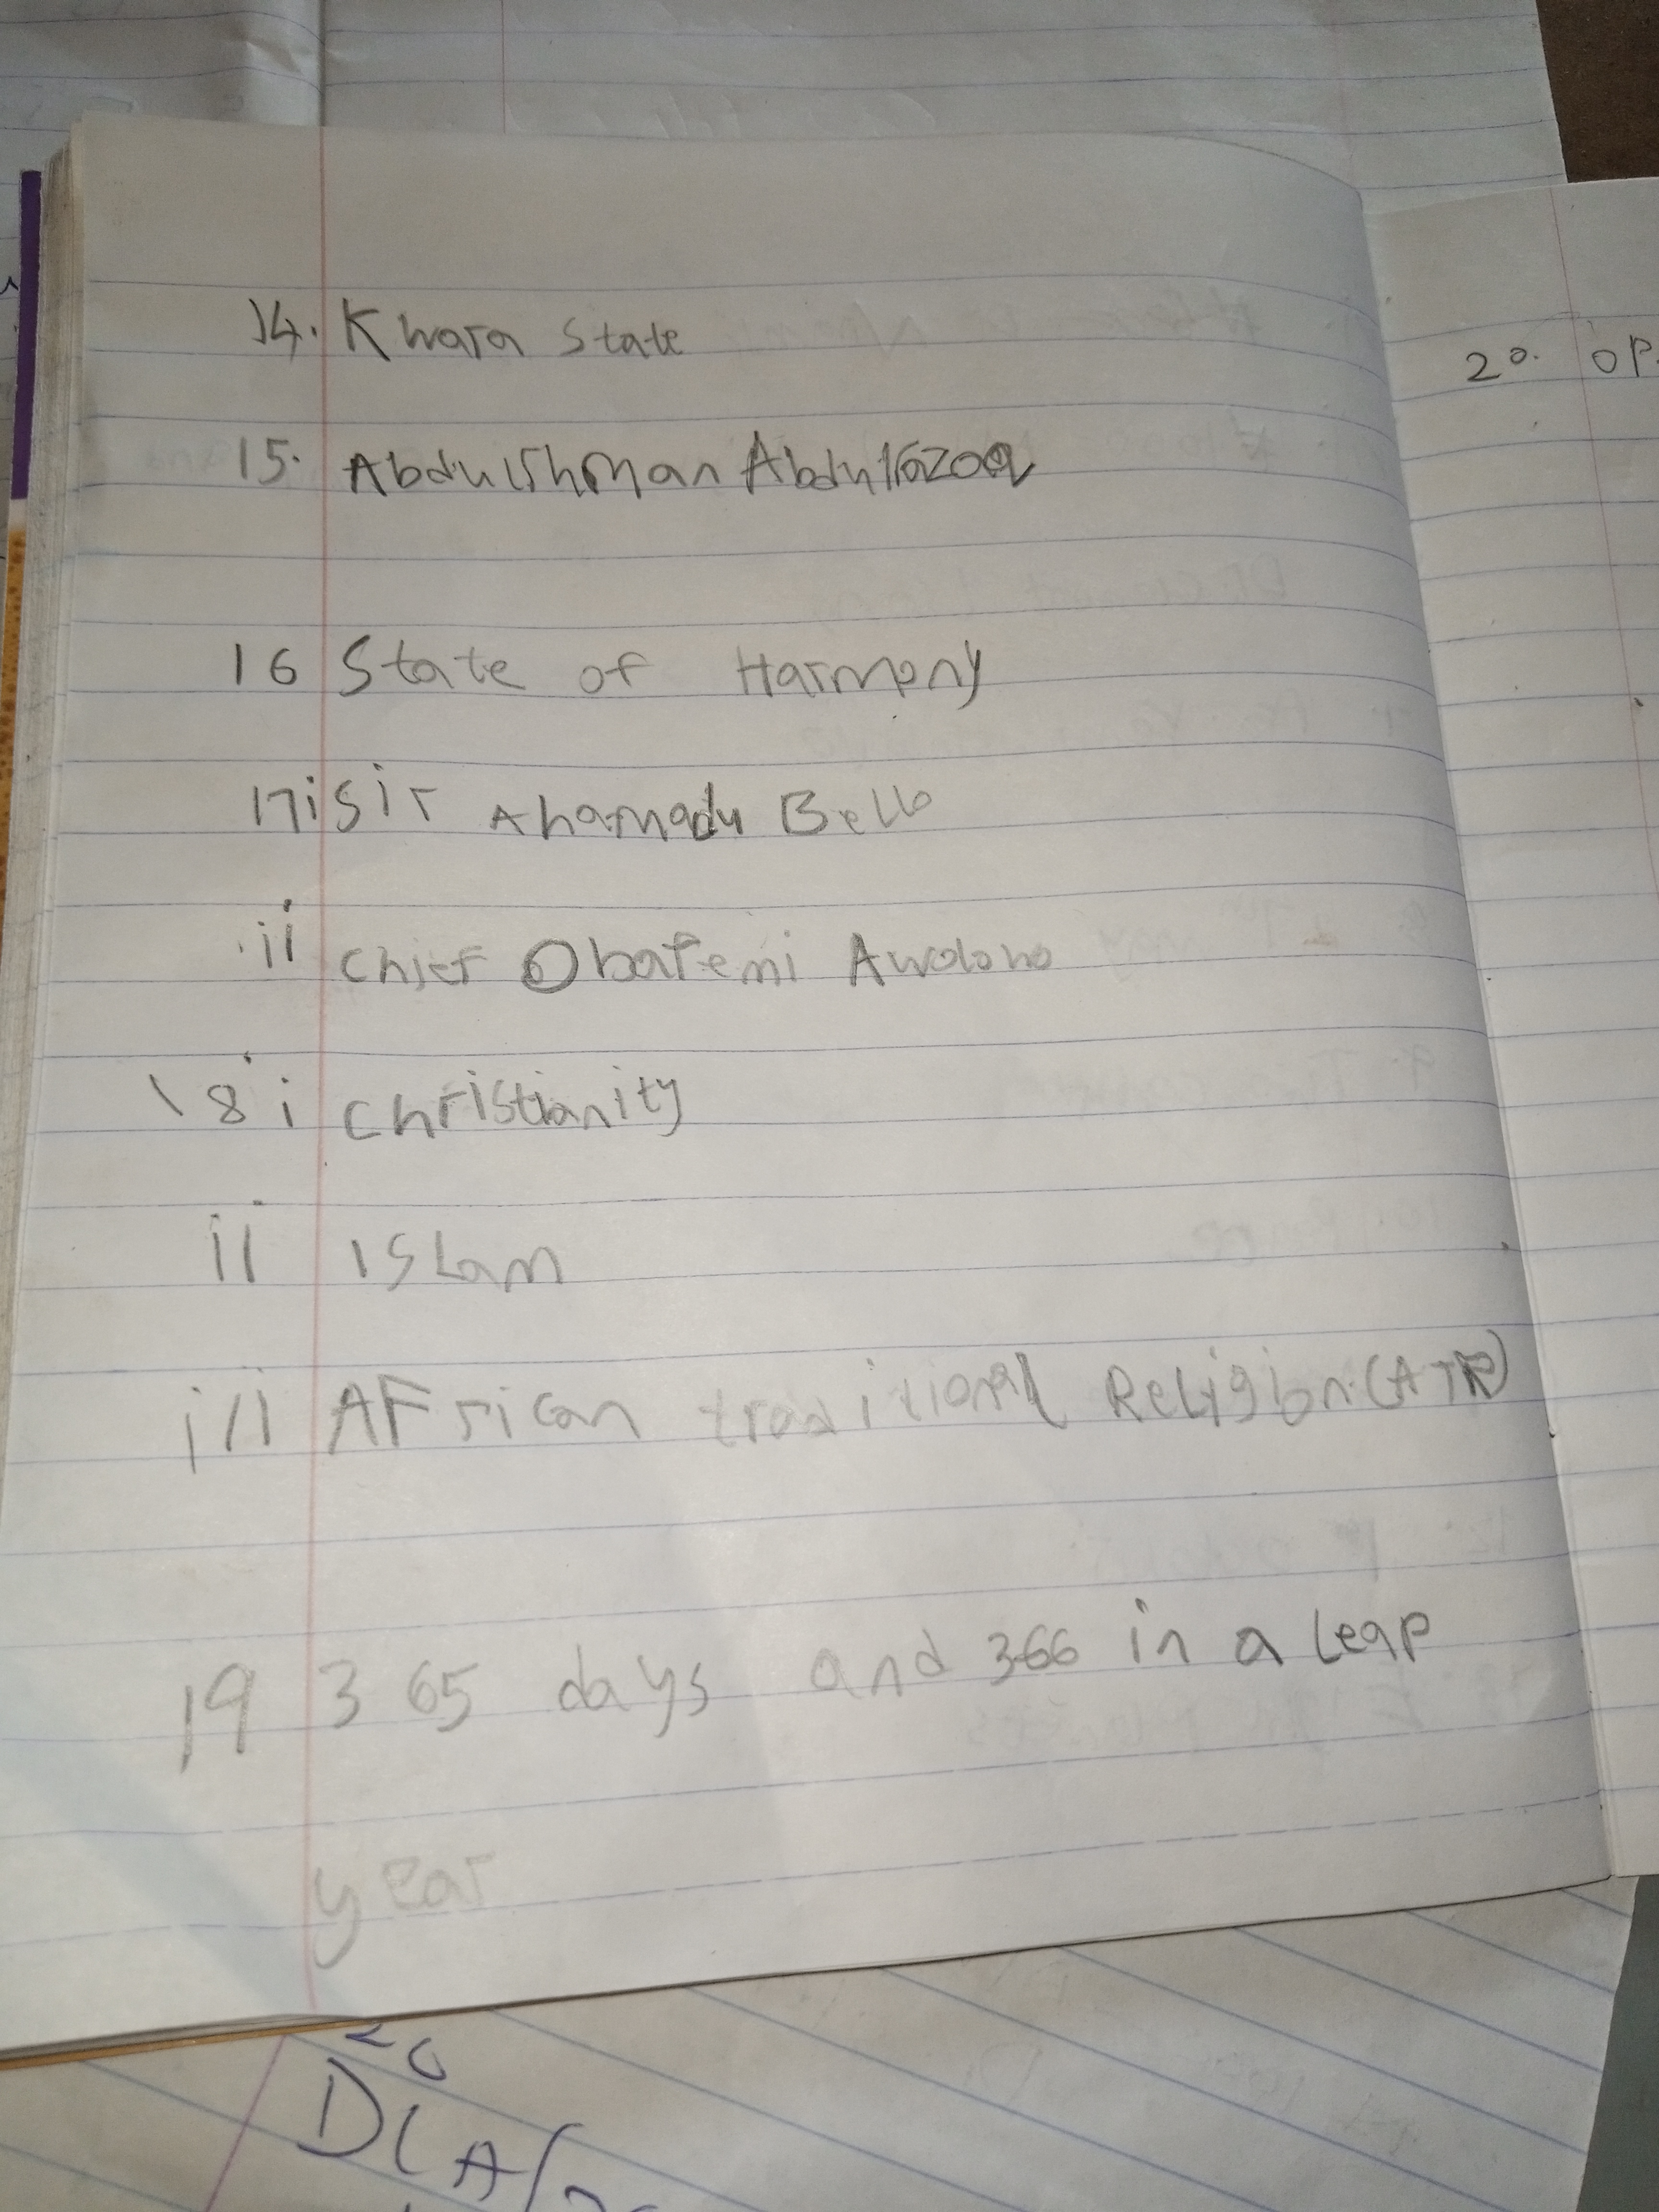 14. Kwara State
15. Abdulrhman Abdulrazaq
16 State of Harmony
17i Sir Ahamadu Bello
ii Chief Obafemi Awolowo
18 i Christianity
ii ISLam
iii AFrican traditional Religion (ATR)
19 365 days and 366 in a Leap
year
20. OP
20